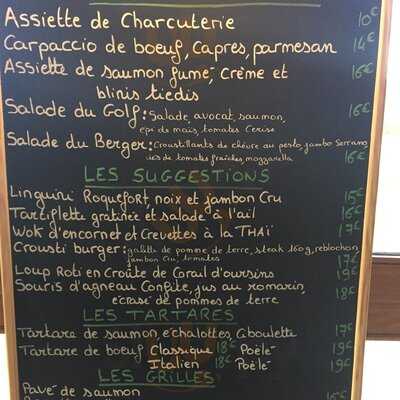 Assiette de Charcuterie 10€
Carpaccio de boeuf, capres, parmesan 14€
Assiette de saumon fumé, crème et 16€
blinis tiedis
Salade du Golf: Salade, avocat, saumon, 16€
epi de maïs, tomates Cerise
Salade du Berger: Croustillants de chèvre au pesto, jambo Serrano
de tomates fraîches, mozzarella 16€
LES SUGGESTIONS
Linguini Roquefort, noix et jambon Cru 15€
Tartiflette gratinée et salade à l'ail 16€
Wok d'encornet et Crevettes à la THAÏ 17€
Crousti burger: galette de pomme de terre, steak 160g, reblochon,
jambon Cru, tomates 17€
Loup Roti en Croûte de Corail d'oursins 19€
Souris d'agneau Confite, jus au romarin, 18€
écrasé de pommes de terre
LES TARTARES
Tartare de saumon, echalottes, Ciboulette 17€
Tartare de boeuf Classique 18€ Poêlé 19€
Italien 18€ Poêlé 19€
LES GRILLES
Pavé de saumon 16€